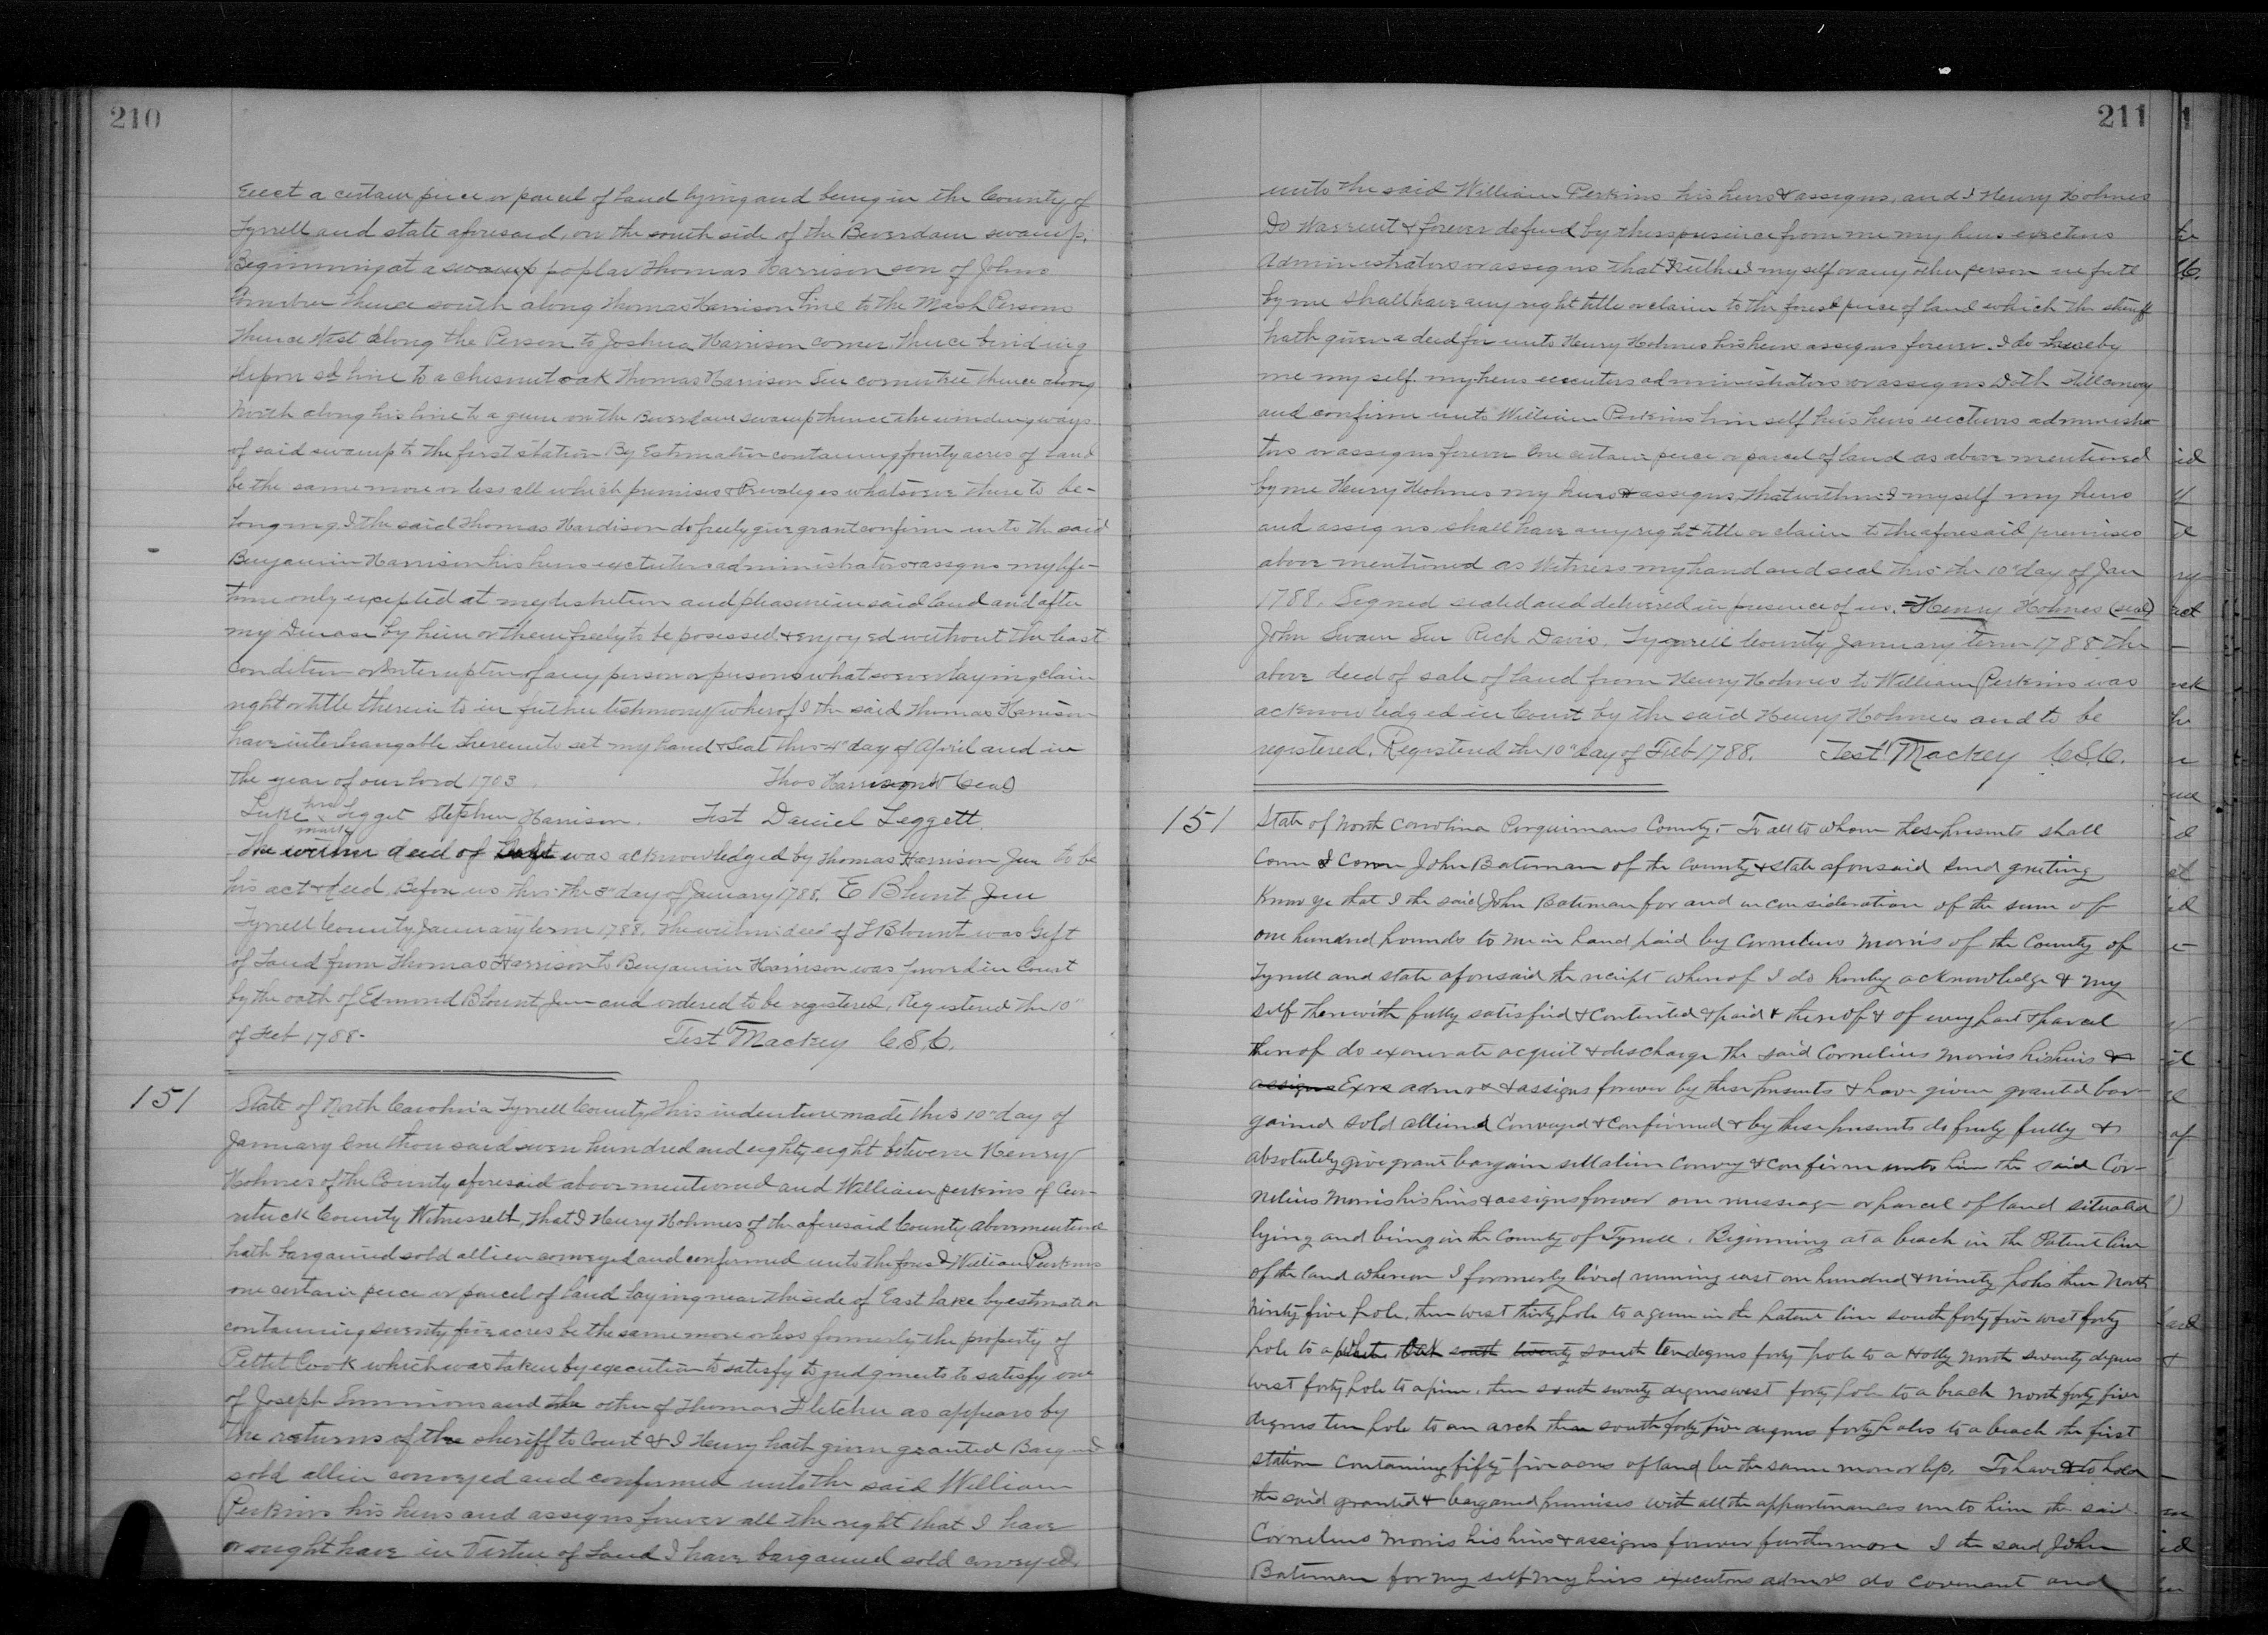 210
Eject a certain piece or parcel of land lying and being in the County of
Tyrrell and state aforesaid, on the south side of the Beverdam swamp,
Beginning at a swamp poplar Thomas Harrison son of Johns
thence south along Thomas Harrison line to the Mash Persons
thence West along the Person to Joshua Harrison corner thence binding
upon sd line to a chesnut oak Thomas Harrison Sen corner tree thence along
North along his line to a gum on the Beverdam swamp thence the winding ways
of said swamp to the first station By Estimation containing fourty acres of land
be the same more or less all which premises & Priveleges whatsoever there to be-
longing. I the said Thomas Hardison do freely give grant confirm unto the said
Benjamin Harrison his heirs exctutors administrators & assigns my life-
time only excepted at my disketion and pleasure in said land and after
my decease by him or them freely to be posessed & enjoyed without the least
condition or Interuption of any person or persons whatsoever laying claim
right or title therein to in futher testimony wherof I the said Thomas Harrison
have interhangable hereunto set my hand & Seal this 4" day of April and in
the year of our Lord 1703. Thos Harrison Seal
Luke his mark Legget Stephen Harrison. Test Daniel Leggett.
The within deed of was acknowledged by Thomas Harrison Jun to be
his act & deed. Before us this the 3" day of January 1788. E Blunt Jun
Tyrrell County January term 1788. The within deed of Blount was Gift
of Land from Thomas Harrison to Benjamin Harrison was proved in Court
by the oath of Edmond Blount Jun and ordered to be registered. Registered the 10"
of Feb 1788- Test Mackey C.S.C.
151
State of North Carolina Tyrrell County This indenture made this 10" day of
January One thousaid seven hundred and eighty eight between Henry
Holmes of the County aforesaid above mentioned and William perkins of Cur-
rituck County Witnesseth, That I Henry Holmes of the aforesaid County above mentiond
hath bargained sold allien conveyed and confirmed unto the foresd William Perkins
one certain peice or parcel of land laying near the side of East lake by estimation
containing seventy five acres be the same more or less formerly the property of
Pettit Cook which was taken by execution to satisfy to judgments to satisfy one
of Joseph Simmions and the other of Thomas Fletcher as appears by
the returns of the sheriff to Court & I Henry hath given granted Barg
sold allien conveyed and confirmed unto the said William
Perkins his heirs and assigns forever all the right that I have
or ought have in Vertue of Land I have bargained sold conveyed,
211
unto the said William Perkins his heirs & assigns, and I Henry Holmes
Do Warrent & forever defend by thes presence from me my heirs exectors
Administrators or assigns that Neither I my self or any other person
by me shall have any right title or claim to the foresd piece of land which the sheriff
hath given a deed for unto Henry Holmes his heirs assigns forever. I do
me my self. my heirs executors administrators or assigns Doth still convey
and confirm unto William Perkins him self his heirs exectures administra
tors or assigns forever One certain peice or parcel of land as above mentioned
by me Henry Holmes my heirs & assigns, that I myself my heirs
and assigns shall have any right title or claim to the aforesaid premises
above mentioned as Witness my hand and seal this the 10" day of Jan
1788. Signed sealed and delivered in presence of us. Henry Holmes (seal)
John Swain Sen Rich Davis. Tygerrell County January term 1788 the
above deed of sale of land from Henry Holmes to William Perkins was
acknowledged in Court by the said Henry Holmes and to be
registered. Registered the 10" day of Feb 1788. Test Mackey C.S.C.
151
State of North Carrolina Perquimans County:- To all to whom these presents shall
Come I Come John Bateman of the County & state aforesaid send greeting
Know ye that I the said John Bateman for and in consideration of the sum of
one hundred pounds to me in hand paid by Cornelius Morris of the County of
Tyrrell and state aforesaid the reciept whereof I do hereby acknowledge & my
self therewith fully satisfied & Contented & paid & thereof & of every part & parcel
thereof do exonerate acquit & discharge the said Cornelius Morris his heirs &
assigns Exrs admrs & assigns forever by these presents & have given granted bar-
gained sold alliened Conveyed & Confirmed & by these presents do freely fully &
absolutely give grant bargain sell alien Convey & Confirm unto him the said Cor-
nelius Morris his heirs & assigns forever one messuage or parcel of land situated
lying and being in the County of Tyrrell. Beginning at a beach in the Patent line
of the land whereon I formerly lived running east one hundred & ninety poles then North
Ninty five pole, then west thirty pole to a gum in the patent line south forty five west forty
pole to a White Oak south twenty south ten degrees forty pole to a Holly North seventy degrees
west forty pole to a pine, then south seventy degrees west forty pole to a beach North forty five
degrees ten pole to an arch then south forty five degrees forty poles to a beach the first
station Containing fifty five acres of land be the same more or less. To have & to hold
the said granted & bargained premises with all the appurtinances unto him the said
Cornelius Morris his heirs & assigns forever furthermore I the said John
Bateman for my self my heirs executors admrs do Covenant and